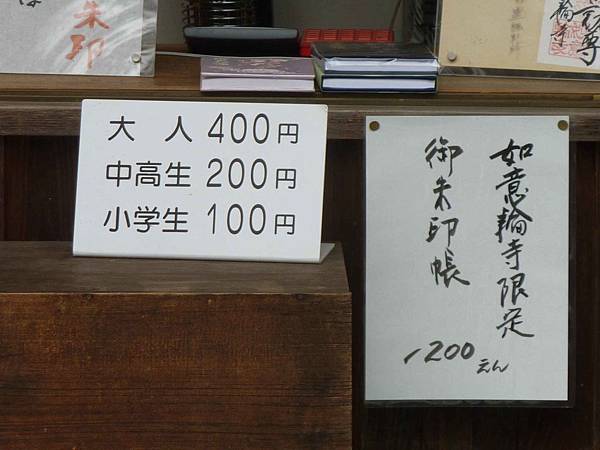 朱印
は
輪寺
大人 400円
中高生 200円
小学生 100円
如意輪寺限定
御朱印帳
1200えん